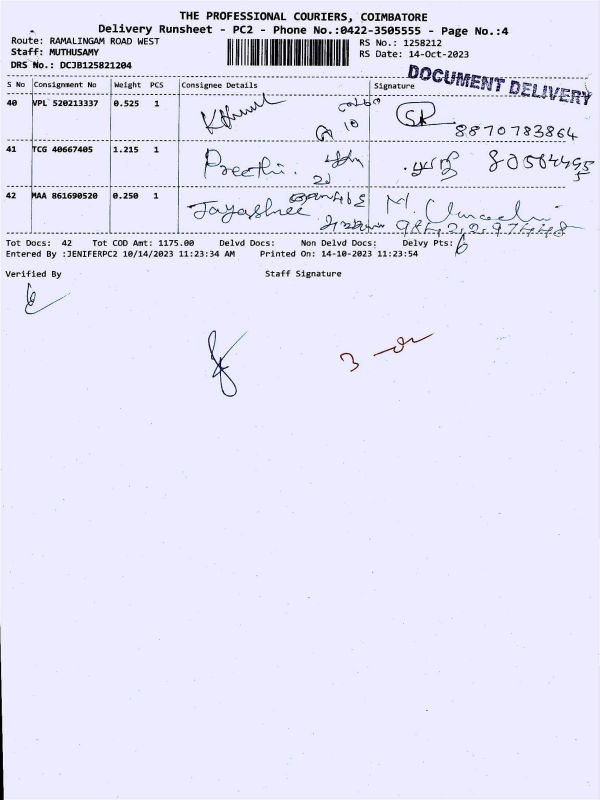 THE PROFESSIONAL COURIERS, COIMBATORE
Delivery Runsheet - PC2 - Phone No.:0422-3505555 - Page No.:4
Route: RAMALINGAM ROAD WEST RS No.: 1258212
Staff: MUTHUSAMY RS Date: 14-Oct-2023
DRS No.: DCJB125821204
DOCUMENT DELIVERY
S No Consignment No Weight PCS Consignee Details Signature
40 VPL 520213337 0.525 1 10 SR
8870783864
41 TCG 40667405 1.215 1 Preethi.
42 MAA 861690520 0.250 1 Jayashree M.
9842297448
Tot Docs: 42 Tot COD Amt: 1175.00 Delvd Docs: Non Delvd Docs: Delvy Pts: 6
Entered By :JENIFERPC2 10/14/2023 11:23:34 AM Printed On: 14-10-2023 11:23:54
Verified By Staff Signature